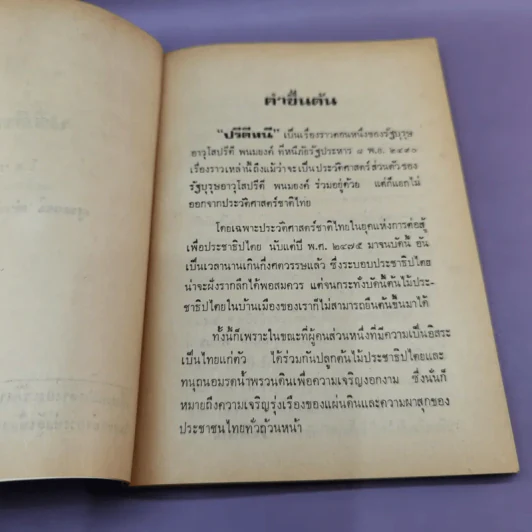 คำขึ้นต้น
"ปรีดีหนี" เป็นเรื่องราวตอนหนึ่งของรัฐบุรุษ
อาวุโสปรีดี พนมยงค์ ที่หนีภัยรัฐประหาร ๘ พ.ย. ๒๔๙๐
เรื่องราวเหล่านี้ถึงแม้ว่าจะเป็นประวัติศาสตร์ส่วนตัวของ
รัฐบุรุษอาวุโสปรีดี พนมยงค์ ร่วมอยู่ด้วย แต่ก็แยกไม่
ออกจากประวัติศาสตร์ชาติไทย
โดยเฉพาะประวัติศาสตร์ชาติไทยในยุคแห่งการต่อสู้
เพื่อประชาธิปไตย นับแต่ปี พ.ศ. ๒๔๗๕ มาจนบัดนี้ อัน
เป็นเวลานานเกินกึ่งศตวรรษแล้ว ซึ่งระบอบประชาธิปไตย
น่าจะฝังรากลึกได้พอสมควร แต่จนกระทั่งบัดนี้ต้นไม้ประ-
ชาธิปไตยในบ้านเมืองของเราก็ไม่สามารถยืนต้นขึ้นมาได้
ทั้งนี้ก็เพราะในขณะที่ผู้คนส่วนหนึ่งที่มีความเป็นอิสระ
เป็นไทยแก่ตัว ได้ร่วมกันปลูกต้นไม้ประชาธิปไตยและ
ทนุถนอมรดน้ำพรวนดินเพื่อความเจริญงอกงาม ซึ่งนั่นก็
หมายถึงความเจริญรุ่งเรืองของแผ่นดินและความผาสุกของ
ประชาชนไทยทั่วถ้วนหน้า